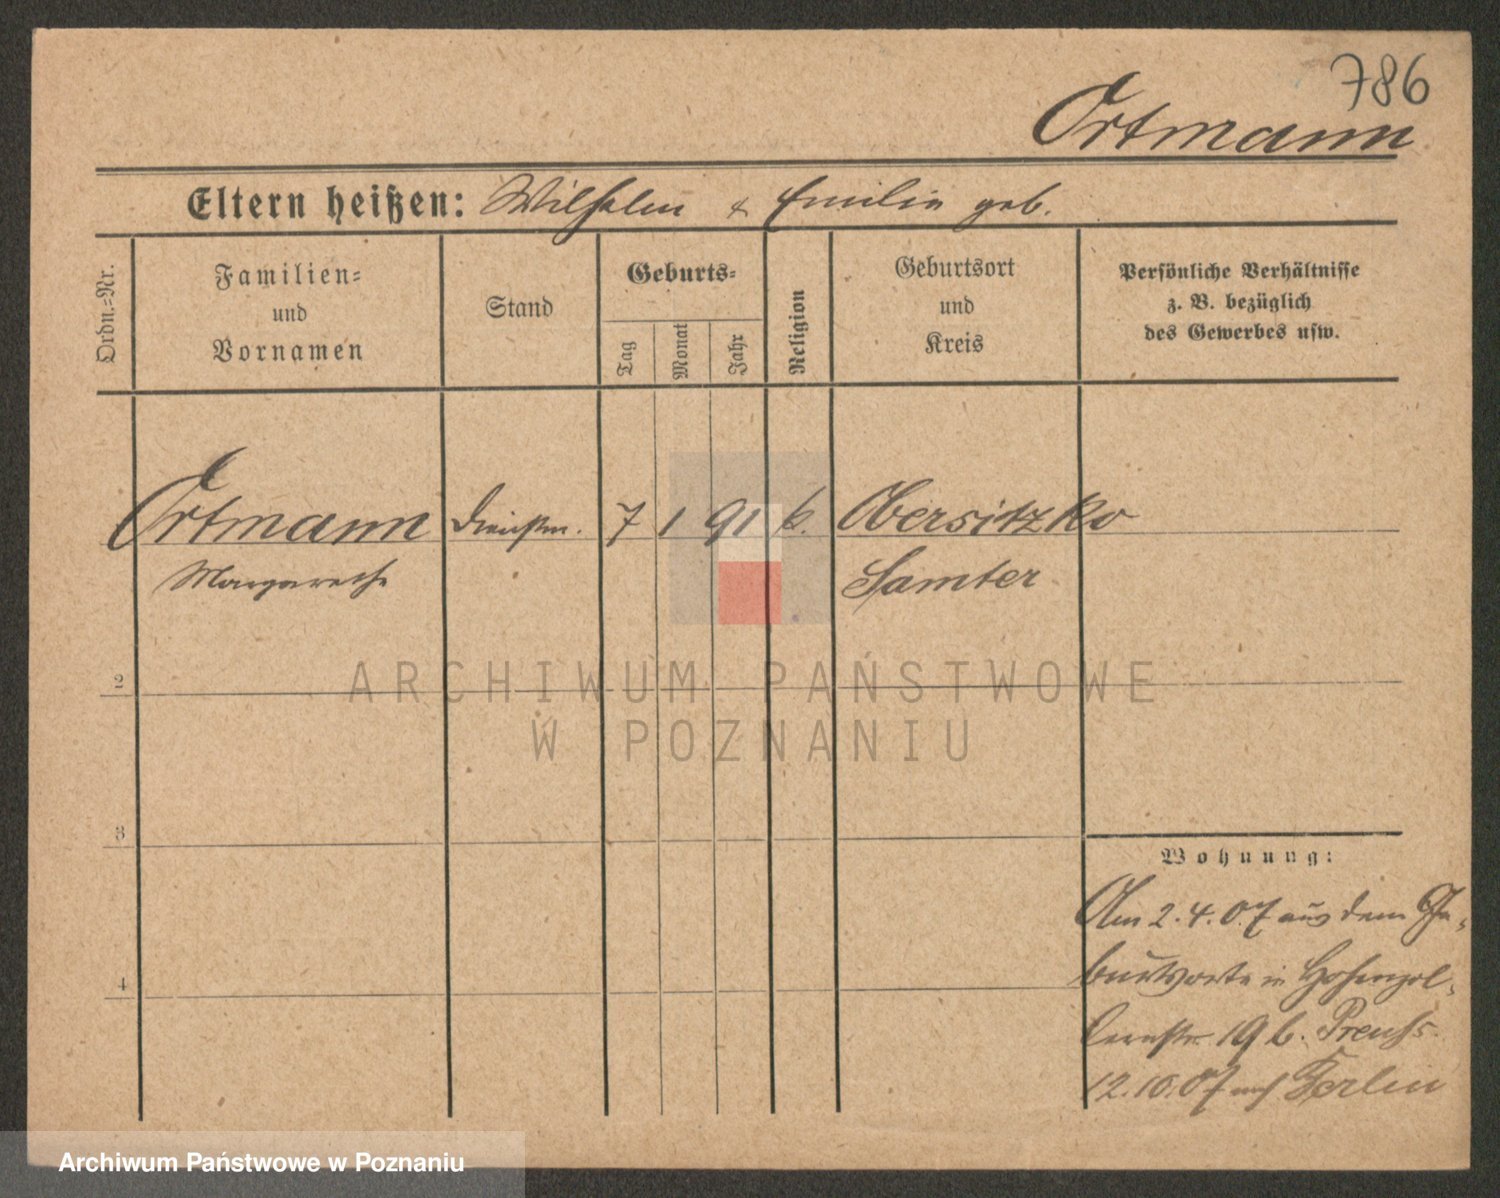 786
Ortmann
Eltern heißen: Wilhelm & Emilie geb.
Ordn.-Nr.
Familien-
und
Vornamen
Stand
Geburts-
Tag
Monat
Jahr
Religion
Geburtsort
und
Kreis
Persönliche Verhältnisse
z. B. bezüglich
des Gewerbes usw.
Ortmann Dienstm. 7 1 91 Obersitzko
Margarethe Samter
2
ARCHIWUM PAŃSTWOWE
W POZNANIU
3
Wohnung:
Am 2.4.07 aus dem Ge-
burtsorte in Hohenzol-
4
lernstr 19 b. Preuss.
12.10.07 nach Berlin
Archiwum Państwowe w Poznaniu